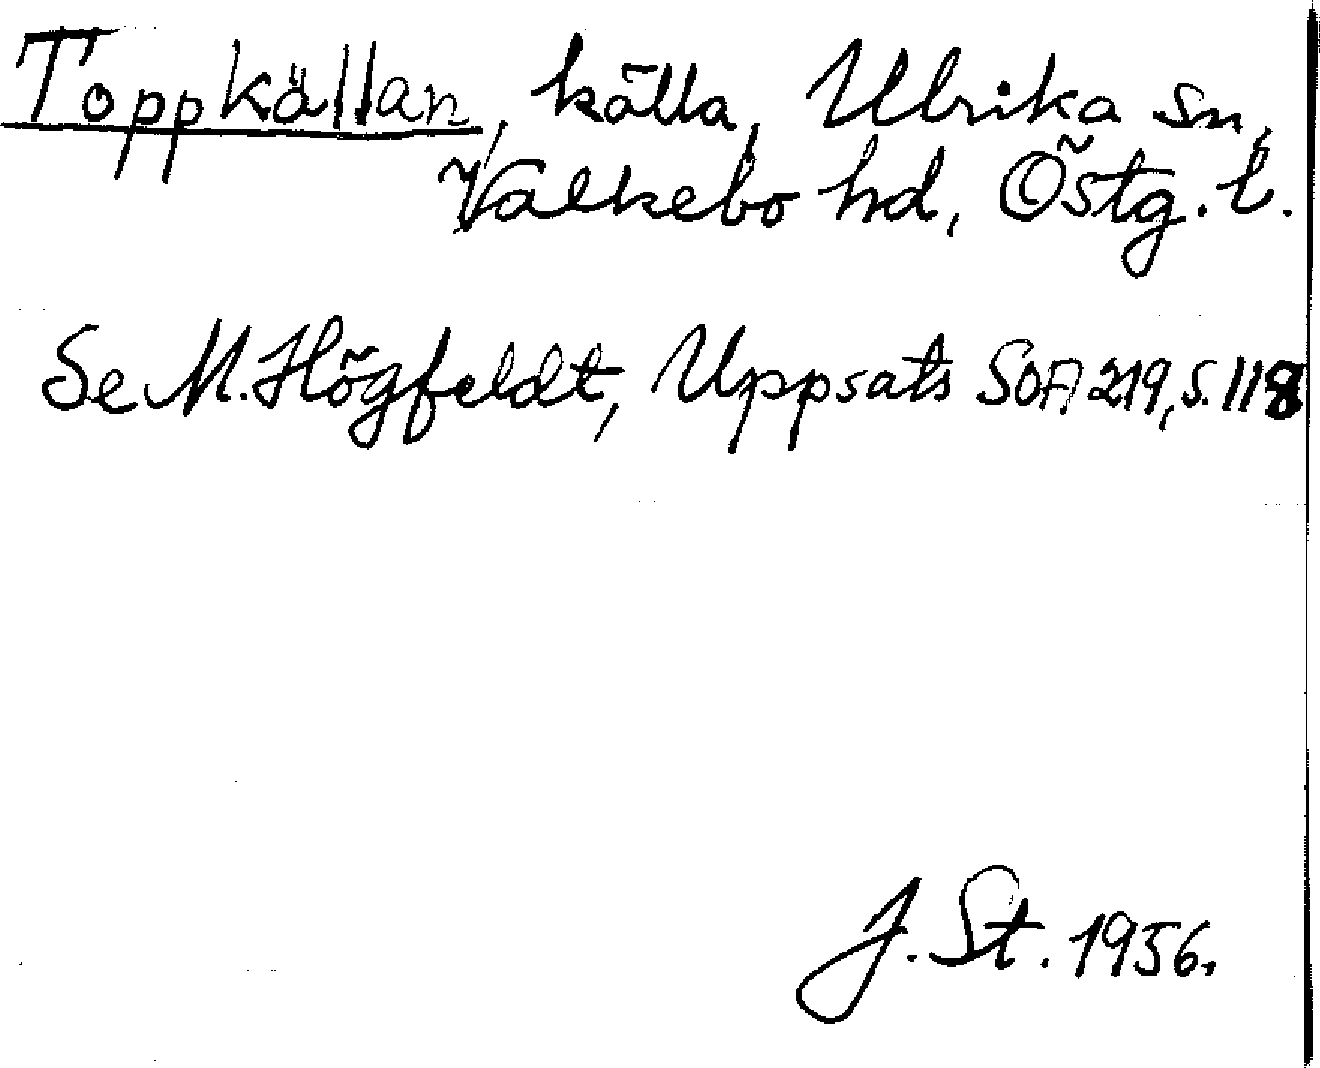 Toppkällan, källa, Ulrika sn,
Valkebo hd, Östg. l.
Se M. Högfeldt, Uppsats SOA 219, s. 118
J. St. 1956.